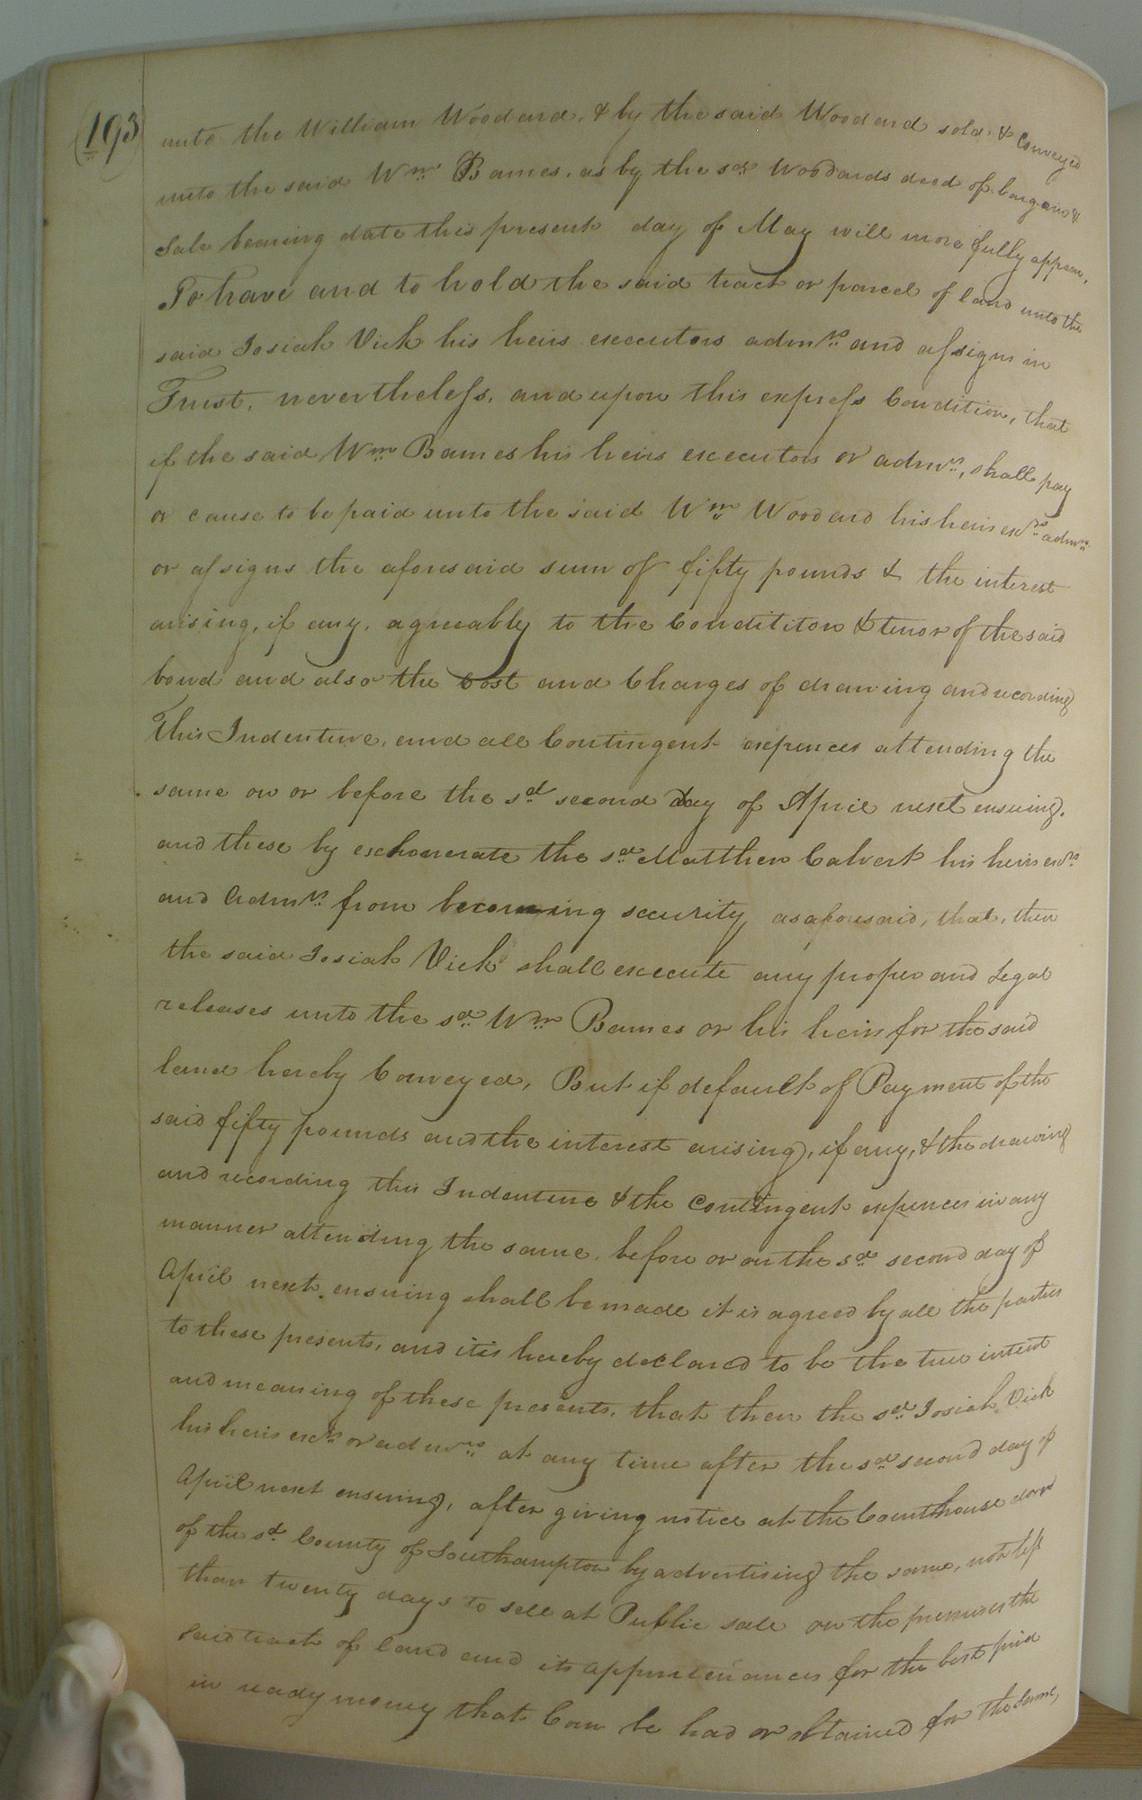 (193)
unto the William Woodard, & by the said Woodard sold & Conveyed
unto the said Wm Barnes, as by the sd Woodards deed of bargain &
Sale bearing date this present day of May will more fully appear,
To have and to hold the said tract or parcel of land unto the
said Josiah Vick his heirs executors admrs and assigns in
Trust, nevertheless, and upon this express Condition, that
if the said Wm Barnes his heirs executors or admrs, shall pay
or cause to be paid unto the said Wm Woodard his heirs exrs admrs
or assigns the aforesaid sum of fifty pounds & the interest
arising, if any, agreeably to the Condititon & tenor of the said
bond and also the Cost and Charges of drawing and recording
this Indenture, and all Contingent expences attending the
same on or before the sd second day of April next ensuing.
and these by exchonerate the sd Matthew Calvert his heirs exrs
and Admrs from becoming security as aforesaid, that, then
the said Josiah Vick shall execute any proper and Legal
releases unto the sd Wm Barnes or his heirs for the said
land hereby Conveyed, But if default of Payment of the
said fifty pounds and the interest arising, if any, & the drawing
and recording this Indenture & the Contingent expences in any
manner attending the same, before or on the sd second day of
April next ensuing shall be made it is agreed by all the parties
to these presents, and itis hereby declared to be the true intent
and meaning of these presents, that then the sd Josiah Vick
his heirs exrs or admrs at any time after the sd second day of
April next ensuing, after giving notice at the Courthouse door
of the sd County of Southampton by advertising the same, not less
than twenty days to sell at Public sale on the premises the
said tract of land and its appurtenances for the best price
in ready money that Can be had or obtained for the same,